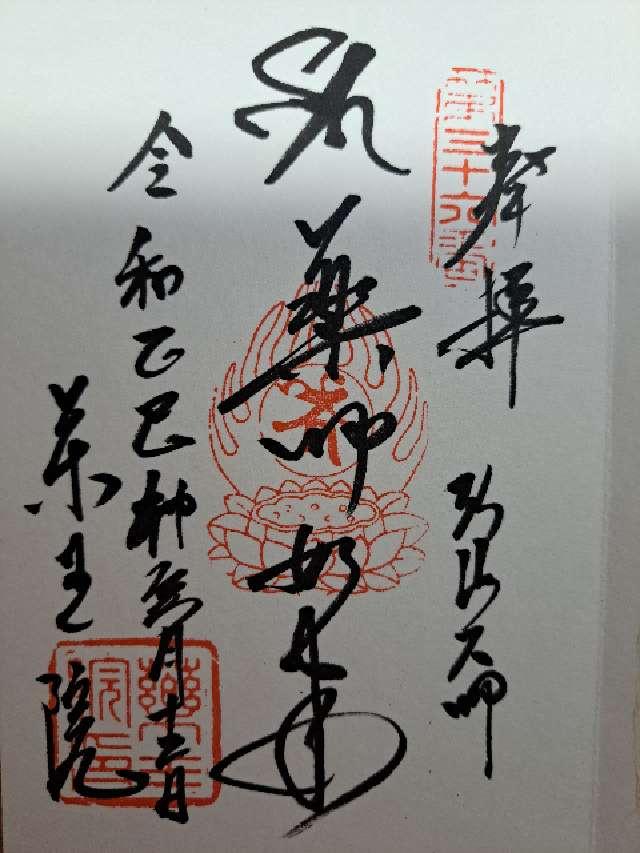 第三十六番
奉拝
弘法大師
薬師如来
令和乙巳神無月十三日
薬王院
薬王院印